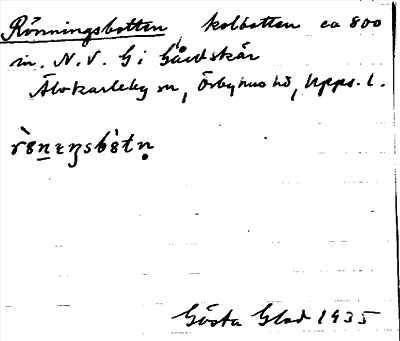 Rönningsbotten kolbotten ca 800
m. N.V. G i Gårdskär
Älvkarleby sn, Örbyhus hd, Upps. l.
Gösta Glad 1935